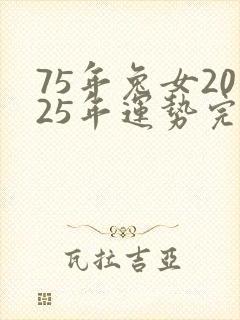 75年兔女20
25年運勢完
瓦拉吉亞